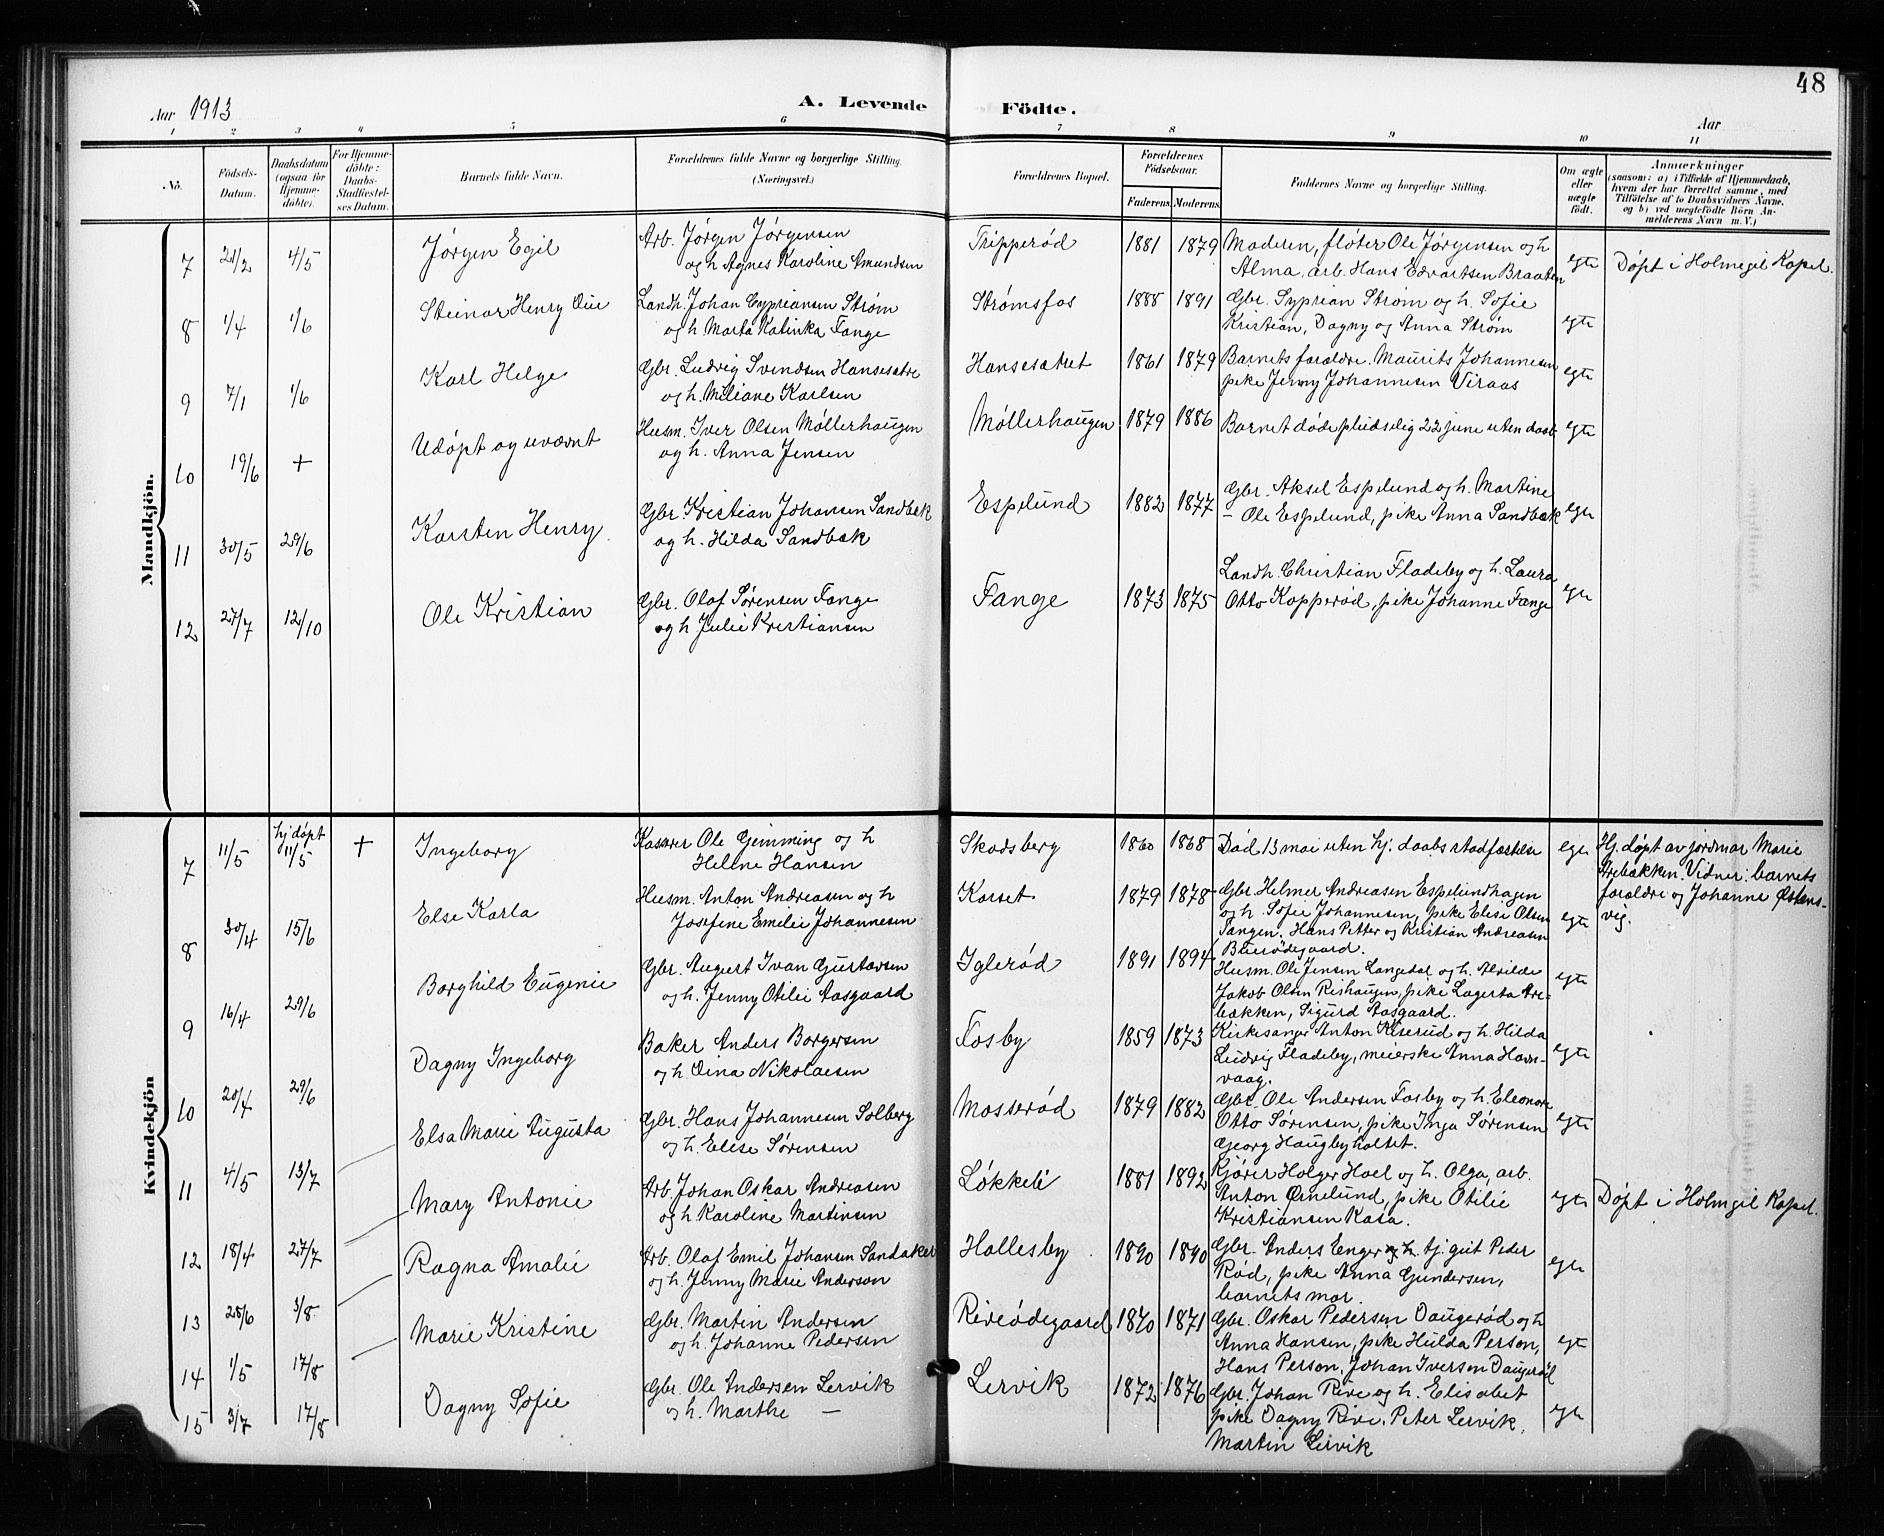 48
Aar 1913
A. Levende Födte.
Aar
1 2 3 4 5 6 7 8 9 10 11
Nö.
Födsels-
Datum.
Daabsdatum
(ogsaa for
Hjemme-
döbte).
For Hjemme-
döbte:
Daabs-
Stadfæstel-
ses Datum.
Barnets fulde Navn.
Forældrenes fulde Navne og borgerlige Stilling.
(Næringsvei.)
Forældrenes Bopæl.
Forældrenes
Födselsaar.
Faderens Moderens.
Faddernes Navne og borgerlige Stilling.
Om ægte
eller
uægte
födt.
Anmærkninger
(saasom: a) i Tilfælde af Hjemmedaab,
hvem der har forrettet samme, med
Tilföielse af to Daabsvidners Navne.
og b) ved uægtefödte Börn An-
melderens Navn m. V.)
Mandkjön.
7 21/2 4/5 Jørgen Egil
Arb. Jørgen Jørgensen
og h Agnes Karoline Amundsen
Tripperød 1881 1879
Moderen, fløter Ole Jørgensen og h
Alma, arb. Hans Edvartsen Braaten
egte Døpt i Holmegil Kapel.
8 1/4 1/6 Steinar Henry Due
Landh. Johan Cypriansen Strøm
og h Marta Katinka Fange
Strømsfos 1888 1891
Gbr. Syprian Strøm og h. Sofie
Kristian, Dagny og Anna Strøm
egte
9 7/1 1/6 Karl Helge
Gbr. Ludvig Svendsen Hansesætre
og h. Miliane Karlsen
Hansesætret 1861 1879
Barnets forældre. Maurits Johannesen
pike Jenny Johannesen Viraas
egte
10 19/6 + Udøpt og uvævnt
Husm. Iver Olsen Møllerhaugen
og h. Anna Jensen
Møllerhaugen 1879 1886
Barnet døde pludselig 22 june uten daab
egte
11 30/5 29/6 Karsten Henry.
Gbr. Kristian Johansen Sandbæk
og h. Hilda Sandbæk
Espelund 1882 1877
Gbr. Aksel Espelund og h. Martine
— Ole Espelund, pike Anna Sandbæk
egte
12 27/7 12/10 Ole Kristian
Gbr. Olaf Sørensen Fange
og h Julie Kristiansen
Fange 1873 1875
Landh. Christian Fladeby og h. Laura
Otto Kopperød, pike Johanne Fange
egte
Kvindekjön
7 11/5 hj døpt 11/5 + Ingeborg
Kasserer Ole Gimming og h
Hellne Hansen
Skodsberg 1860 1868
Død 13 mai uten hj. daabs stadfæstelse
egte
Hj. døpt av jordmor Marie
Arebækken. Vidner: barnets
forældre og Johanne Østens-
vig.
8 30/4 15/6 Else Karla
Husm. Anton Andreasen og h
Josefine Emilie Johannesen
Korset 1879 1878
Gbr. Helmer Andreasen Espelundhagen
og h. Sofie Johannesen, pike Elise Olsen
Tangen. Hans Petter og Kristian Andreasen
Buerødegaard.
egte
9 16/4 29/6 Borghild Eugenie
Gbr. August Ivan Gustavsen
og h. Jenny Otilie Aasgaard
Iglerød 1891 1894
Husm. Ole Jensen Langedal og h. Alvilde
Jakob Olsen Rishaugen, pike Lagerta Are-
bækken, Sigurd Aasgaard.
egte
10 20/4 29/6 Dagny Ingeborg
Baker Anders Borgersen
og h. Dina Nikolaesen
Fosby 1859 1873
Kirkesanger Anton Kiserud og h. Hilda
Ludvig Fladeby, meierske Anna Havs-
vaag.
egte
11 4/5 13/7 Elsa Marie Augusta
Gbr. Hans Johannesen Solberg
og h. Elise Sørensen
Mosserød 1879 1882
Gbr. Ole Andersen Fosby og h. Eleonore
Otto Sørensen, pike Inga Sørensen
Georg Haugbyholtet.
egte
12 18/4 27/7 Mary Antonie
Arb. Johan Oskar Andreasen
og h. Karoline Martinsen
Løkkele 1881 1892
Kjører Holger Hoel og h. Olga, arb.
Anton Ørnelund, pike Otilie
Kristiansen Kasa.
egte Døpt i Holmegil Kapel.
13 25/6 3/8 Ragna Amalie
Arb. Olaf Emil Johansen Sandaker
og h. Jenny Marie Anderson
Hallesby 1890 1890
Gbr. Anders Enger og h. tj. gut Peder
Rød, pike Anna Gundersen,
barnets mor.
egte
14 1/5 17/8 Marie Kristine
Gbr. Martin Andersen
og h. Johanne Pedersen
Riveødegaard 1870 1871
Gbr. Oskar Pedersen Daugerød og h
Anna Hansen, pike Hulda Person,
Hans Person. Johan Iverson Daugerød
egte
15 3/7 17/8 Dagny Sofie
Gbr. Ole Andersen Lervik
og h. Marthe —
Lervik 1872 1876
Gbr. Johan Rive og h. Elisabet
pike Dagny Rive. Peter Lervik.
Martin Lervik
egte